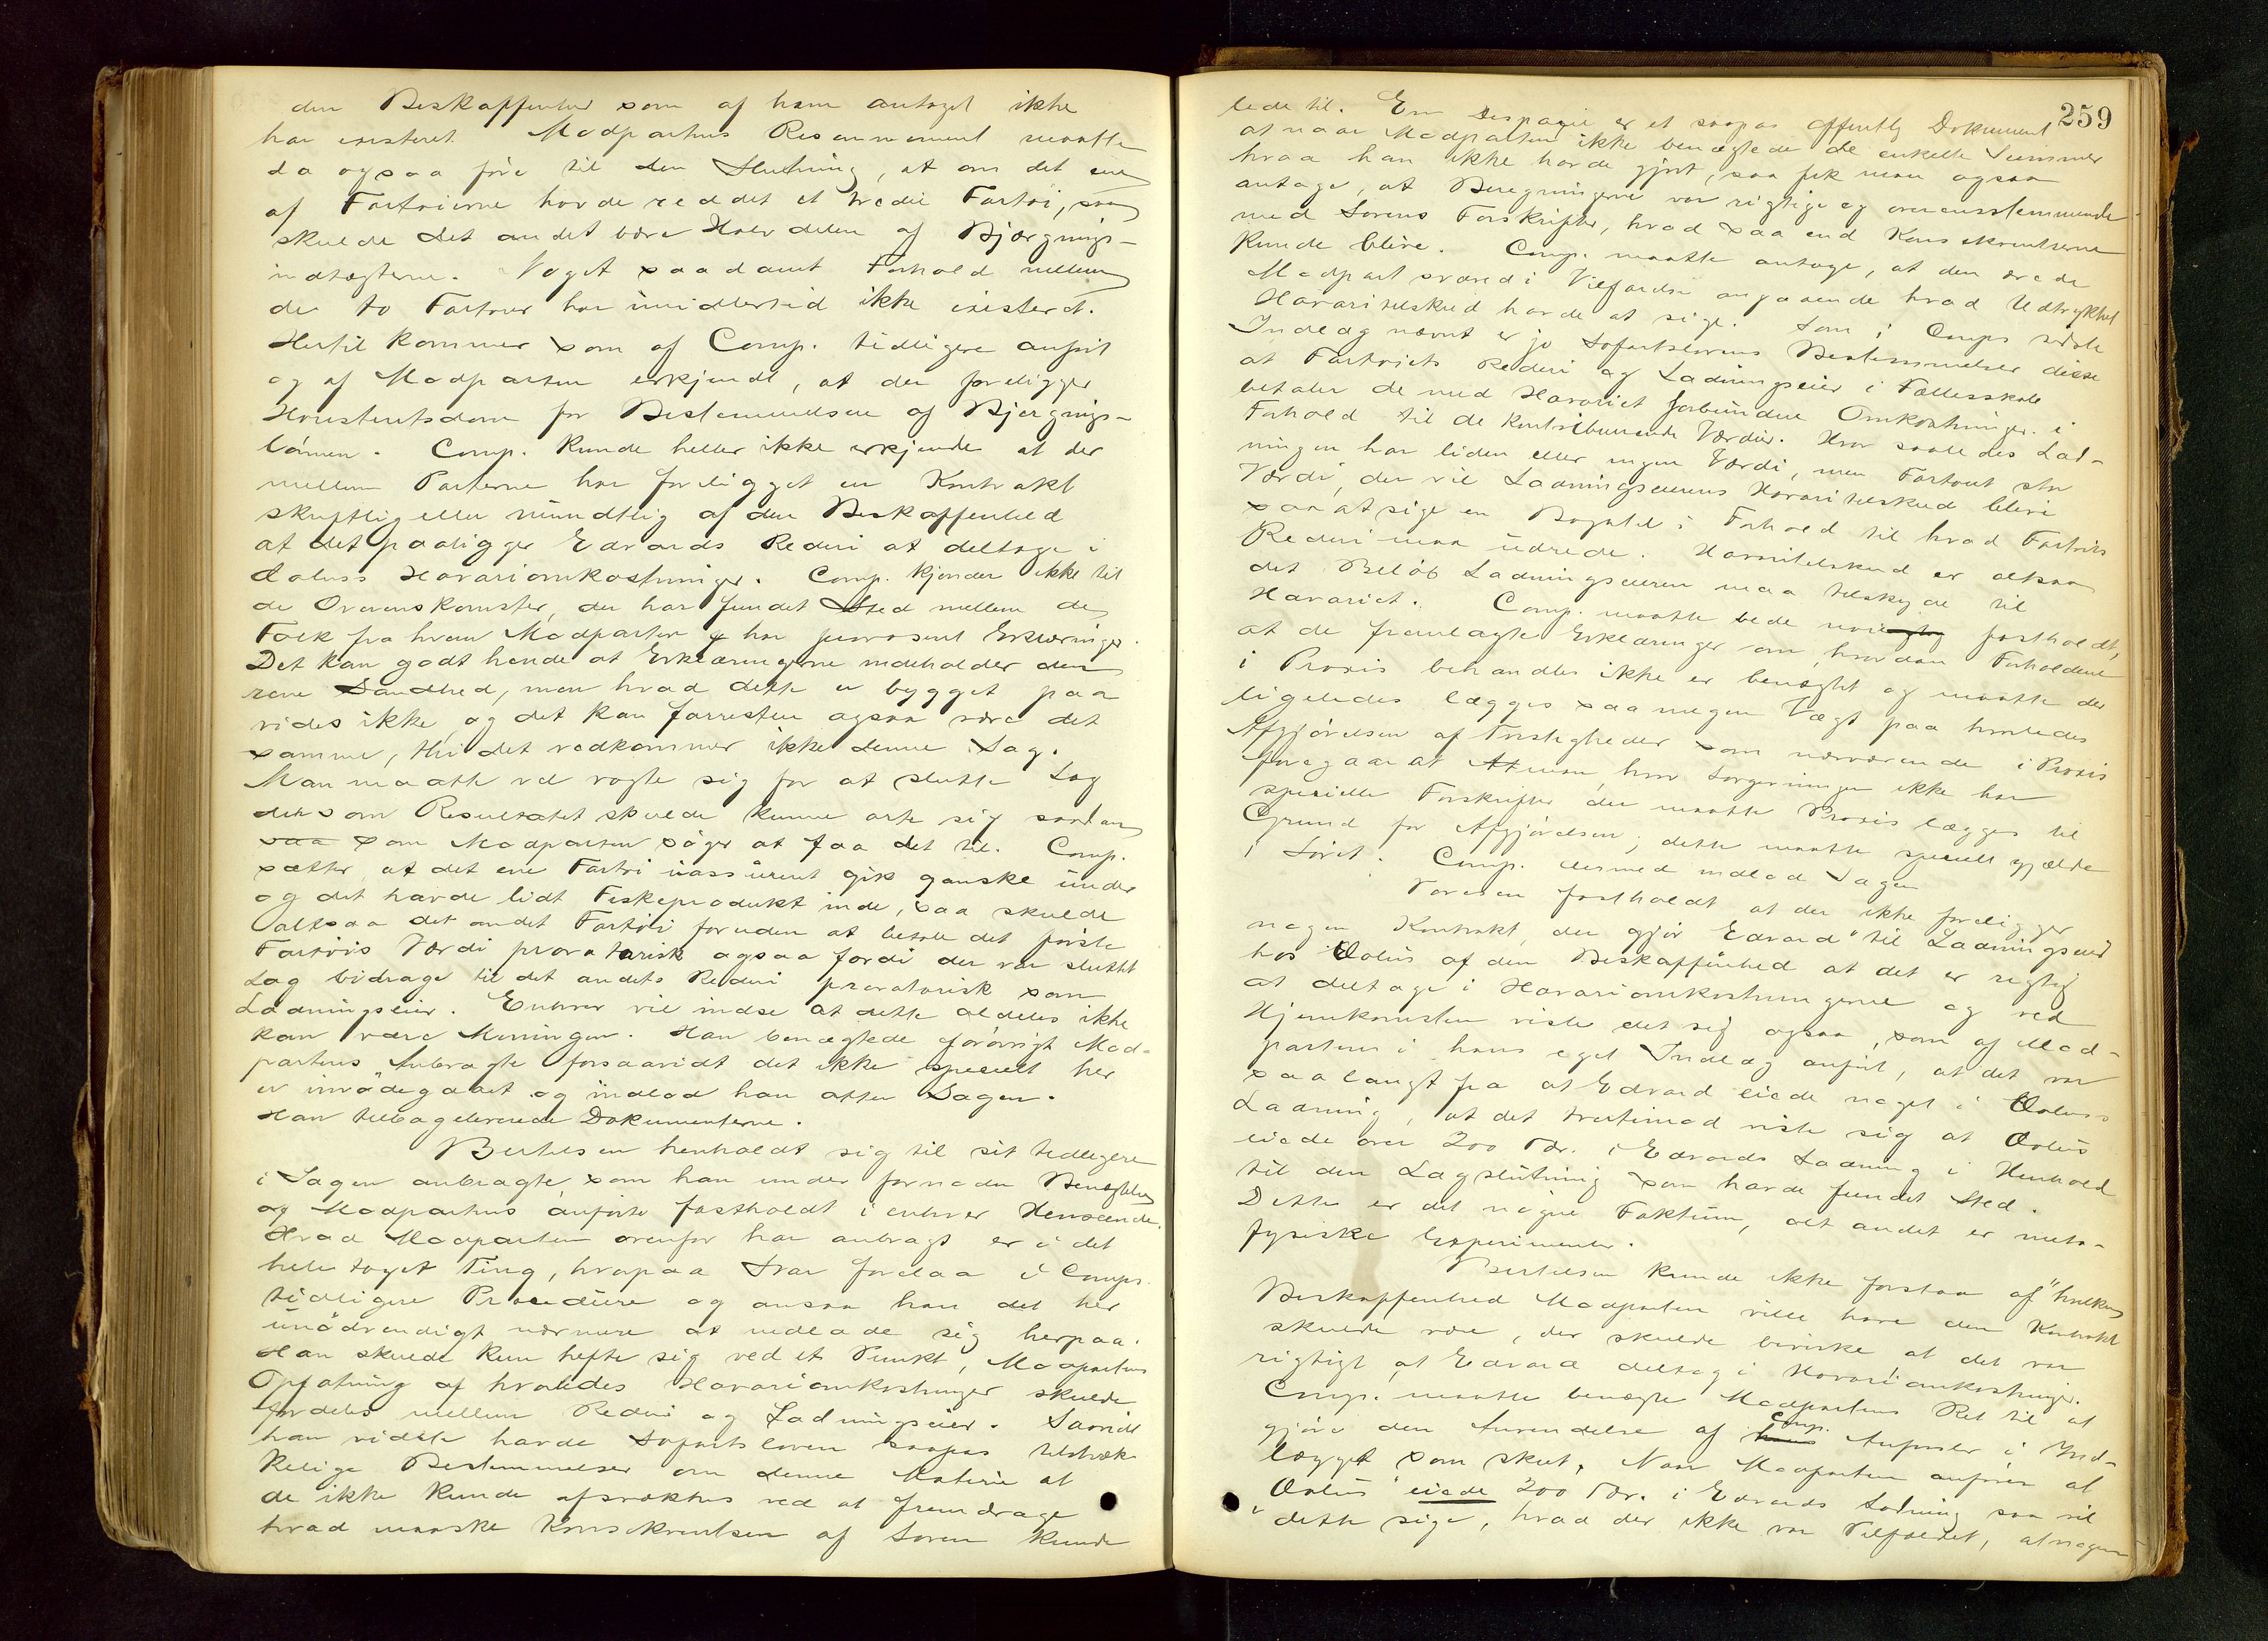 den Beskaffenhed som af ham antaget ikke
har existeret. Modpartens Resonnement maatte
da ogsaa före til den Slutning, at om det ene
af Fartöierne havde reddet et tredie Fartöi, saa
skulde det andet bære Halvdelen af Bjergnings-
indtægterne. Noget saadant Forhold mellem
de to Fartöier har imidlertid ikke existeret.
Hertil kommer som af Comp. tidligere anfört
og af Modparten erkjendt, at der foreligger
Höiesteretsdom for Bestemmelsen af Bjergnings-
lönnen. Comp. kunde heller ikke erkjende at der
mellem Parterne har foreligget en Kontrakt
skriftlig eller mundtlig af den Beskaffenhed
at det paaligger Edvards Rederi at deltage i
Eolus's Havariomkostninger. Comp. kjender ikke til
de Overenskomster, der har fundet Sted mellem de
Folk fra hvem Modparten har Erklæringer.
Det kan godt hende at Erklæringerne indeholder den
rene Sandhed, men hvad dette er bygget paa
vides ikke, og det kan forresten ogsaa være det
samme, thi det vedkommer ikke denne Sag.
Man maatte vel vogte sig for at slutte Lag
dersom Resultatet skulde kunne arte sig saadan
saa som Modparten söger at faa det til. Comp.
sætter at det ene Fartöi uassureret gik ganske under
og det havde lidt Fiskeprodukt inde, saa skulde
altsaa det andet Fartöi foruden at betale det förste
Fartöis Værdi proratarisk ogsaa fordi der var sluttet
Lag bidrage til det andets Rederi proratarisk som
Ladningseier. Enhver vil indse at dette aldeles ikke
kan være Meningen. Han benægtede forövrigt Mod-
partens Anbragte forsaavidt det ikke specielt her
er imödegaaet og indlod han atter Sagen.
Han tilbageleverede Dokumenterne.
Bertelsen henholdt sig til sit tidligere
i Sagen anbragte, som han under fornöden Benægtelse
af Modpartens anförte fastholdt i enhver Henseende.
Hvad Modparten ovenfor har anbragt er i det
hele taget Ting, hvorpaa Svar forelaa i Comps.
tidligere Procedure og ansaa han det her
unödvendigt nærmere at indlade sig herpaa.
Han skulde kun hefte sig ved et Punkt, Modpartens
Opfatning af hvorledes Havariomkostninger skulde
fordeles mellem Rederi og Ladningseier. Saavidt
han vidste havde Söfartsloven saapas tilstræk-
kelige Bestemmelser om denne Materie at
de ikke kunde afsvækkes ved at fremdrage
hvad maaske Konsekvensen af Loven kunde
259
lede til. En Despache er et saapas offentlig Dokument,
at naar Modparten ikke benægtede de enkelte Summer
hvad han ikke havde gjort, saa fik man ogsaa
antage, at Beregningerne var rigtige og overensstemmende
med Lovens Forskrifter, hvad saa end Konsekventserne
kunde blive. Comp. maatte antage, at den ærede
Modpart svæved i Vilfarelse angaaende hvad Udtrykket
Havaritilskud havde at sige. Som i Comps sidste
Indlæg nævnt er jo Söfartslovens Bestemmelser disse
at Fartöiets Rederi og Ladningseier i Fællesskab
betaler de med Havariet forbundne Omkostninger i
Forhold til de kontribuerende Værdier. Hvor saaledes Lad-
ningen har liden eller ingen Værdi, men Fartöiet stor
Værdi, der vil Ladningseierens Havaritilskud blive
saa at sige en Bagatel i Forhold til hvad Fartöiets
Rederi maa udrede. Havaritilskud er altsaa
det Belöb Ladningseieren maa tilskyde til
Havariet. Comp. maatte bede fastholdt,
at de fremlagte Erklæringer om, hvordan Forholdene
i Praxis behandles ikke er benægtet og maatte der
ligeledes lægges saa megen Vægt paa hvorledes
Afgjörelsen af Tvistigheder som nærværende i Praxis
foregaar at, hvor Lovgivningen ikke har
specielle Forskrifter, der maatte Praxis lægges til
Grund for Afgjörelsen; dette maatte specielt gjælde
i Söret. Comp. dermed indlod Sagen
Toresen fastholdt at der ikke foreligger
nogen Kontrakt, der gjör "Edvard" til Ladningseier
hos Eolus af den Beskaffenhed at det er rigtig
at deltage i Havariomkostningerne og ved
Hjemkomsten viste det sig ogsaa, som af Mod-
parten i hans eget Indlæg anfört, at det var
saa langt fra at Edvard eiede noget i Eolus's
Ladning, at det tvertimod viste sig at Eolus
eiede over 200 Tdr. i Edvards Ladning i Henhold
til den Lagslutning som havde fundet Sted.
Dette er det nögne Faktum, alt andet er meta-
fysiske Experimenter.
Bertelsen kunde ikke forstaa af "hvilken
Beskaffenhed Modparten ville have den Kontrakt
skulde være, der skulde bevirke, at det var
rigtigt, at Edvard deltog i Havariomkostninger.
Comp. maatte benægte Modpartens Ret til at
gjöre den Anvendelse af hans Comp. Anförsler i Ind-
lægget som sket. Naar Modparten anförer at
Eolus "eiede 200 Tdr. i Edvards Ladning saa vil
dette sige, hvad der ikke var Tilfældet, at nogen